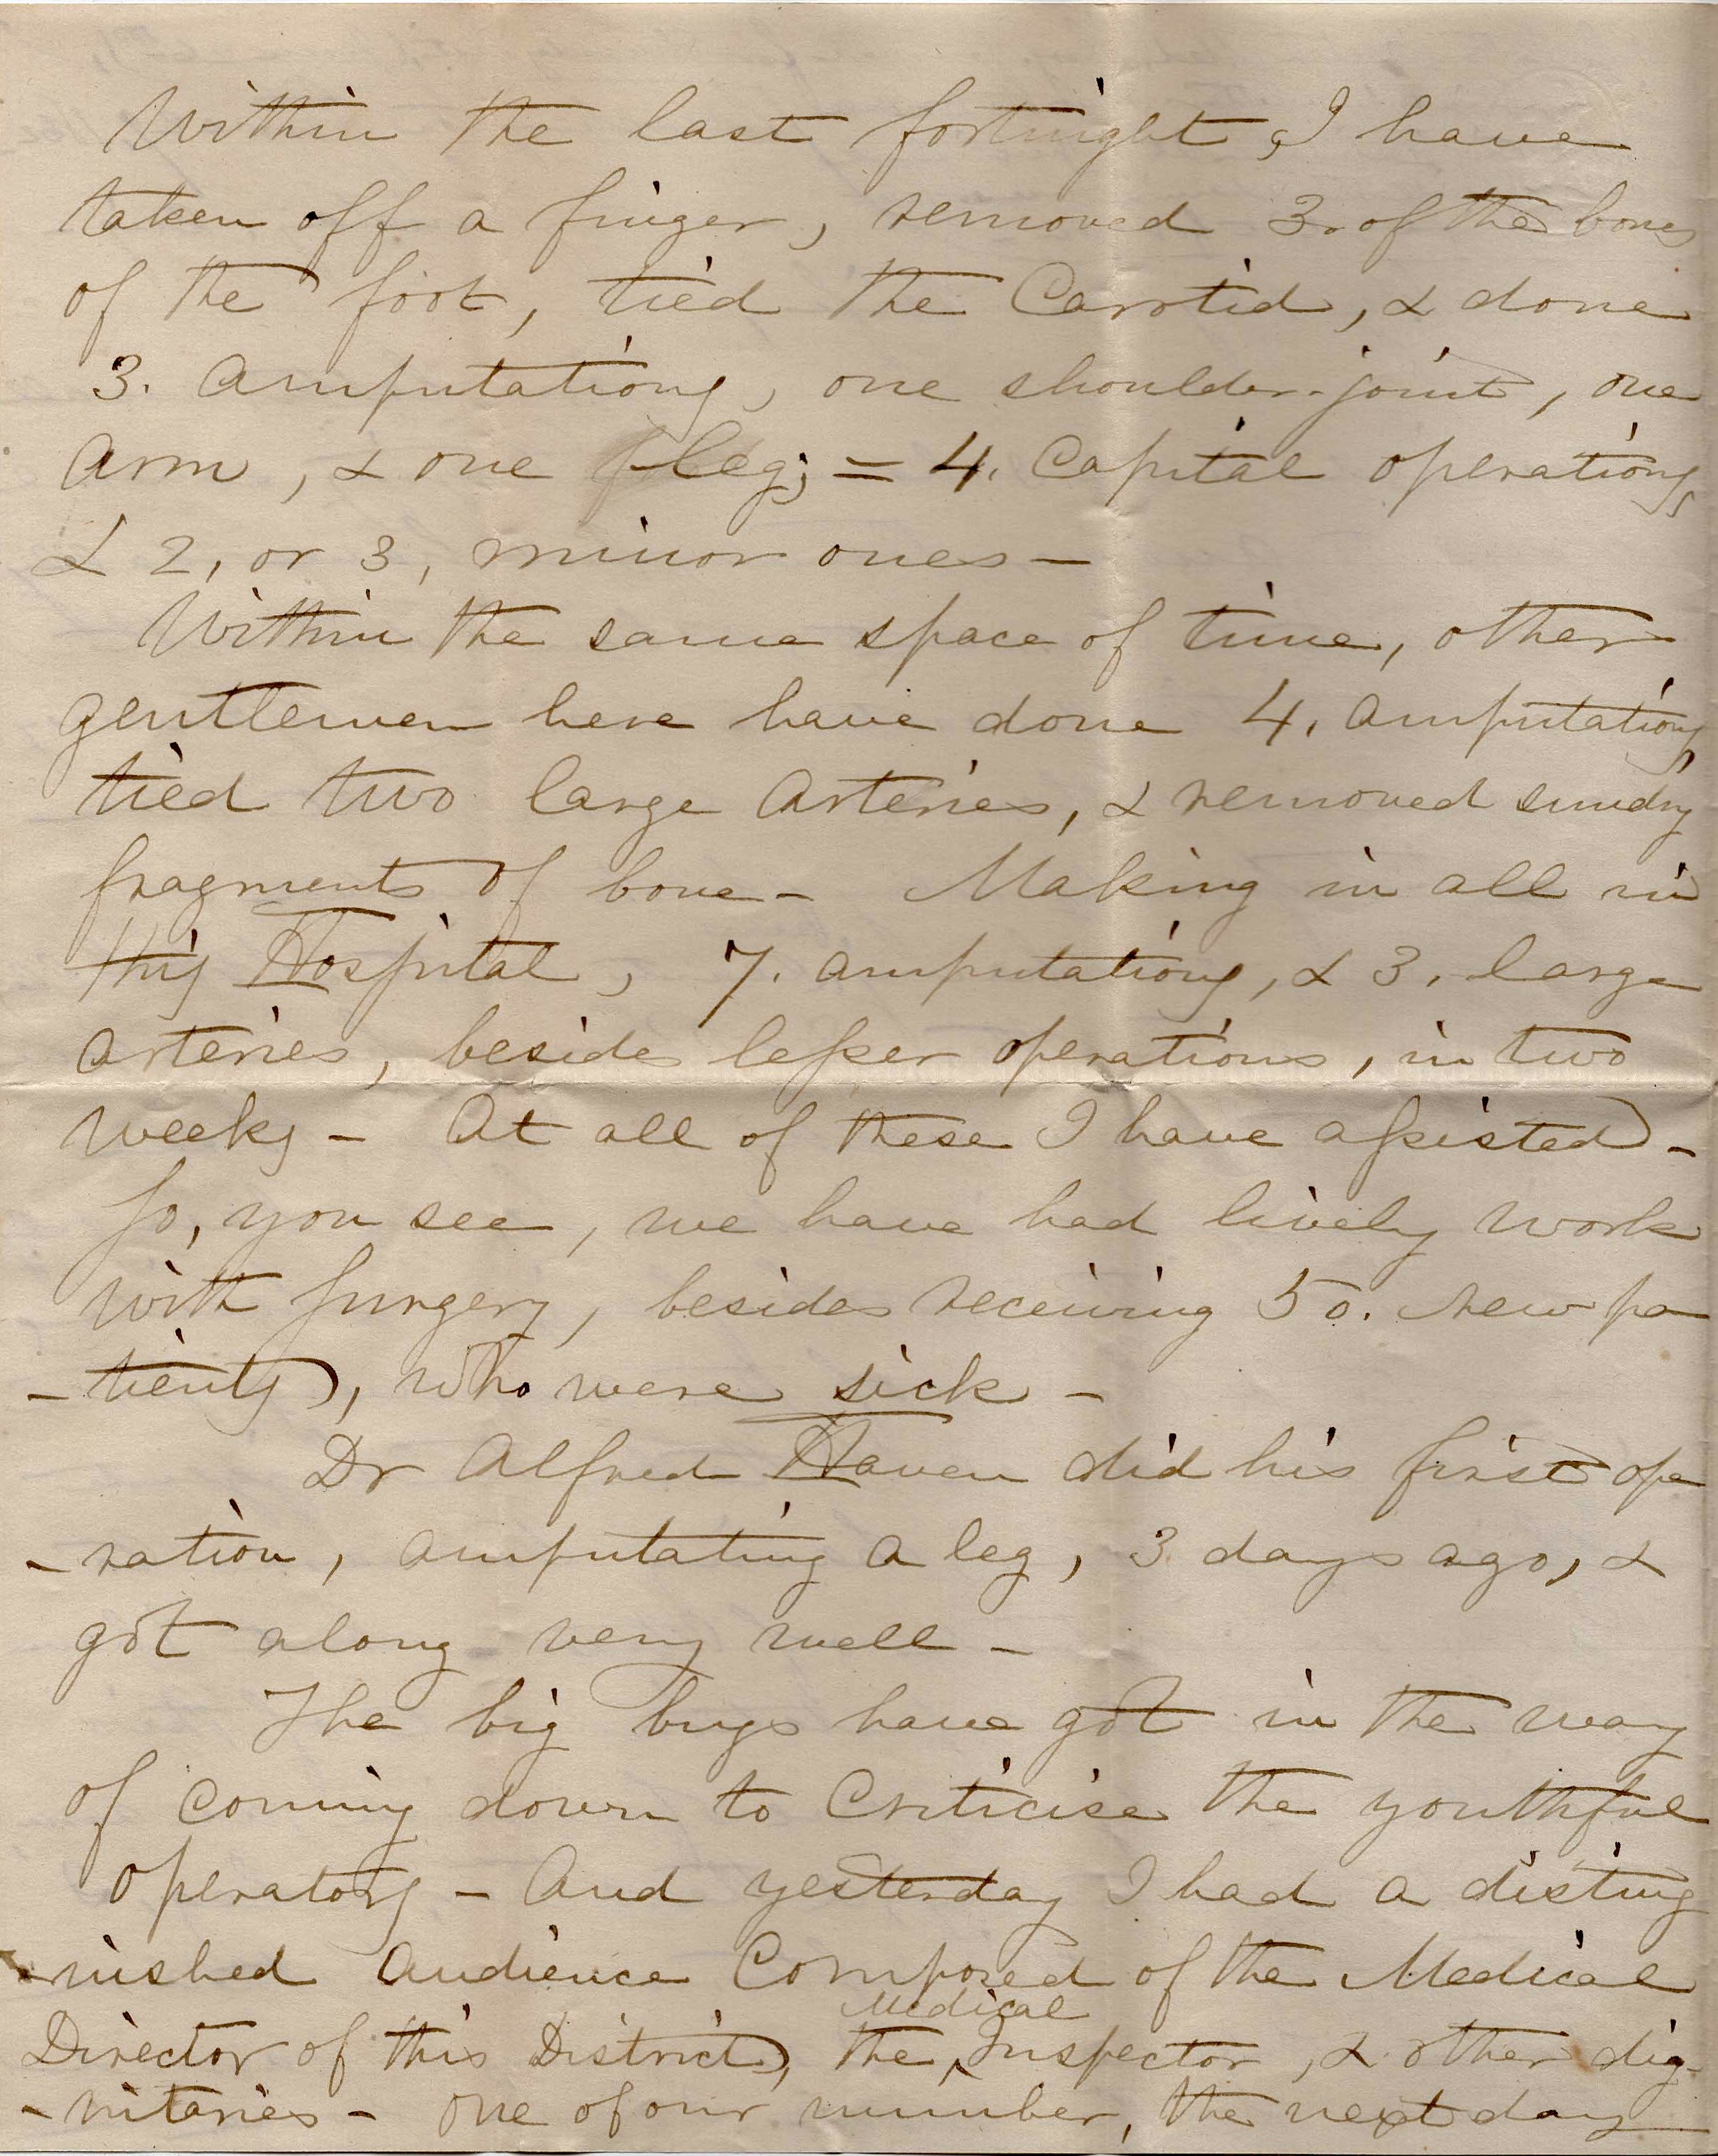 Within the last fortnight, I have
taken off a finger, removed 3. of the bones
of the foot, tied the Carotid, & done
3. amputations, one shoulder-joint, one
arm, & one leg; = 4. Capital operations,
& 2, or 3, minor ones -
Within the same space of time, other
gentlemen here have done 4, amputations,
tied two large arteries, & removed sundry
fragments of bone - Making in all in
this Hospital, 7. amputations, & 3. large
arteries, beside lesser operations, in two
weeks - At all of these I have assisted -
So, you see, we have had lively work
with Surgery, besides receiving 50. new pa
-tients, who were sick -
Dr Alfred Haven did his first ope
-ration, amputating a leg, 3 days ago, &
got along very well -
The big bugs have got in the way
of coming down to Criticise the youthful
operators - And yesterday I had a disting
-uished audience Composed of the Medical
Director of this District, the Medical Inspector, & other dig-
-nitaries - One of our number, the next day